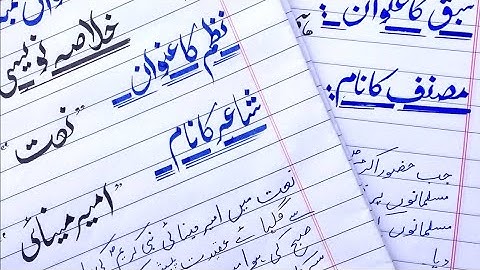 خلاصہ نویسی
نظم کا عنوان:
"نعت"
شاعر کا نام:
"امیر مینائی"
نعت میں امیر مینائی نبی کریمؐ کی
سے گلہائے عقیدت پیش
صبح کی ہوا
سبق کا عنوان:
مصنف کا نام:
جب حضور اکر
مسلمانوں پر
مسلمانوں
دیا